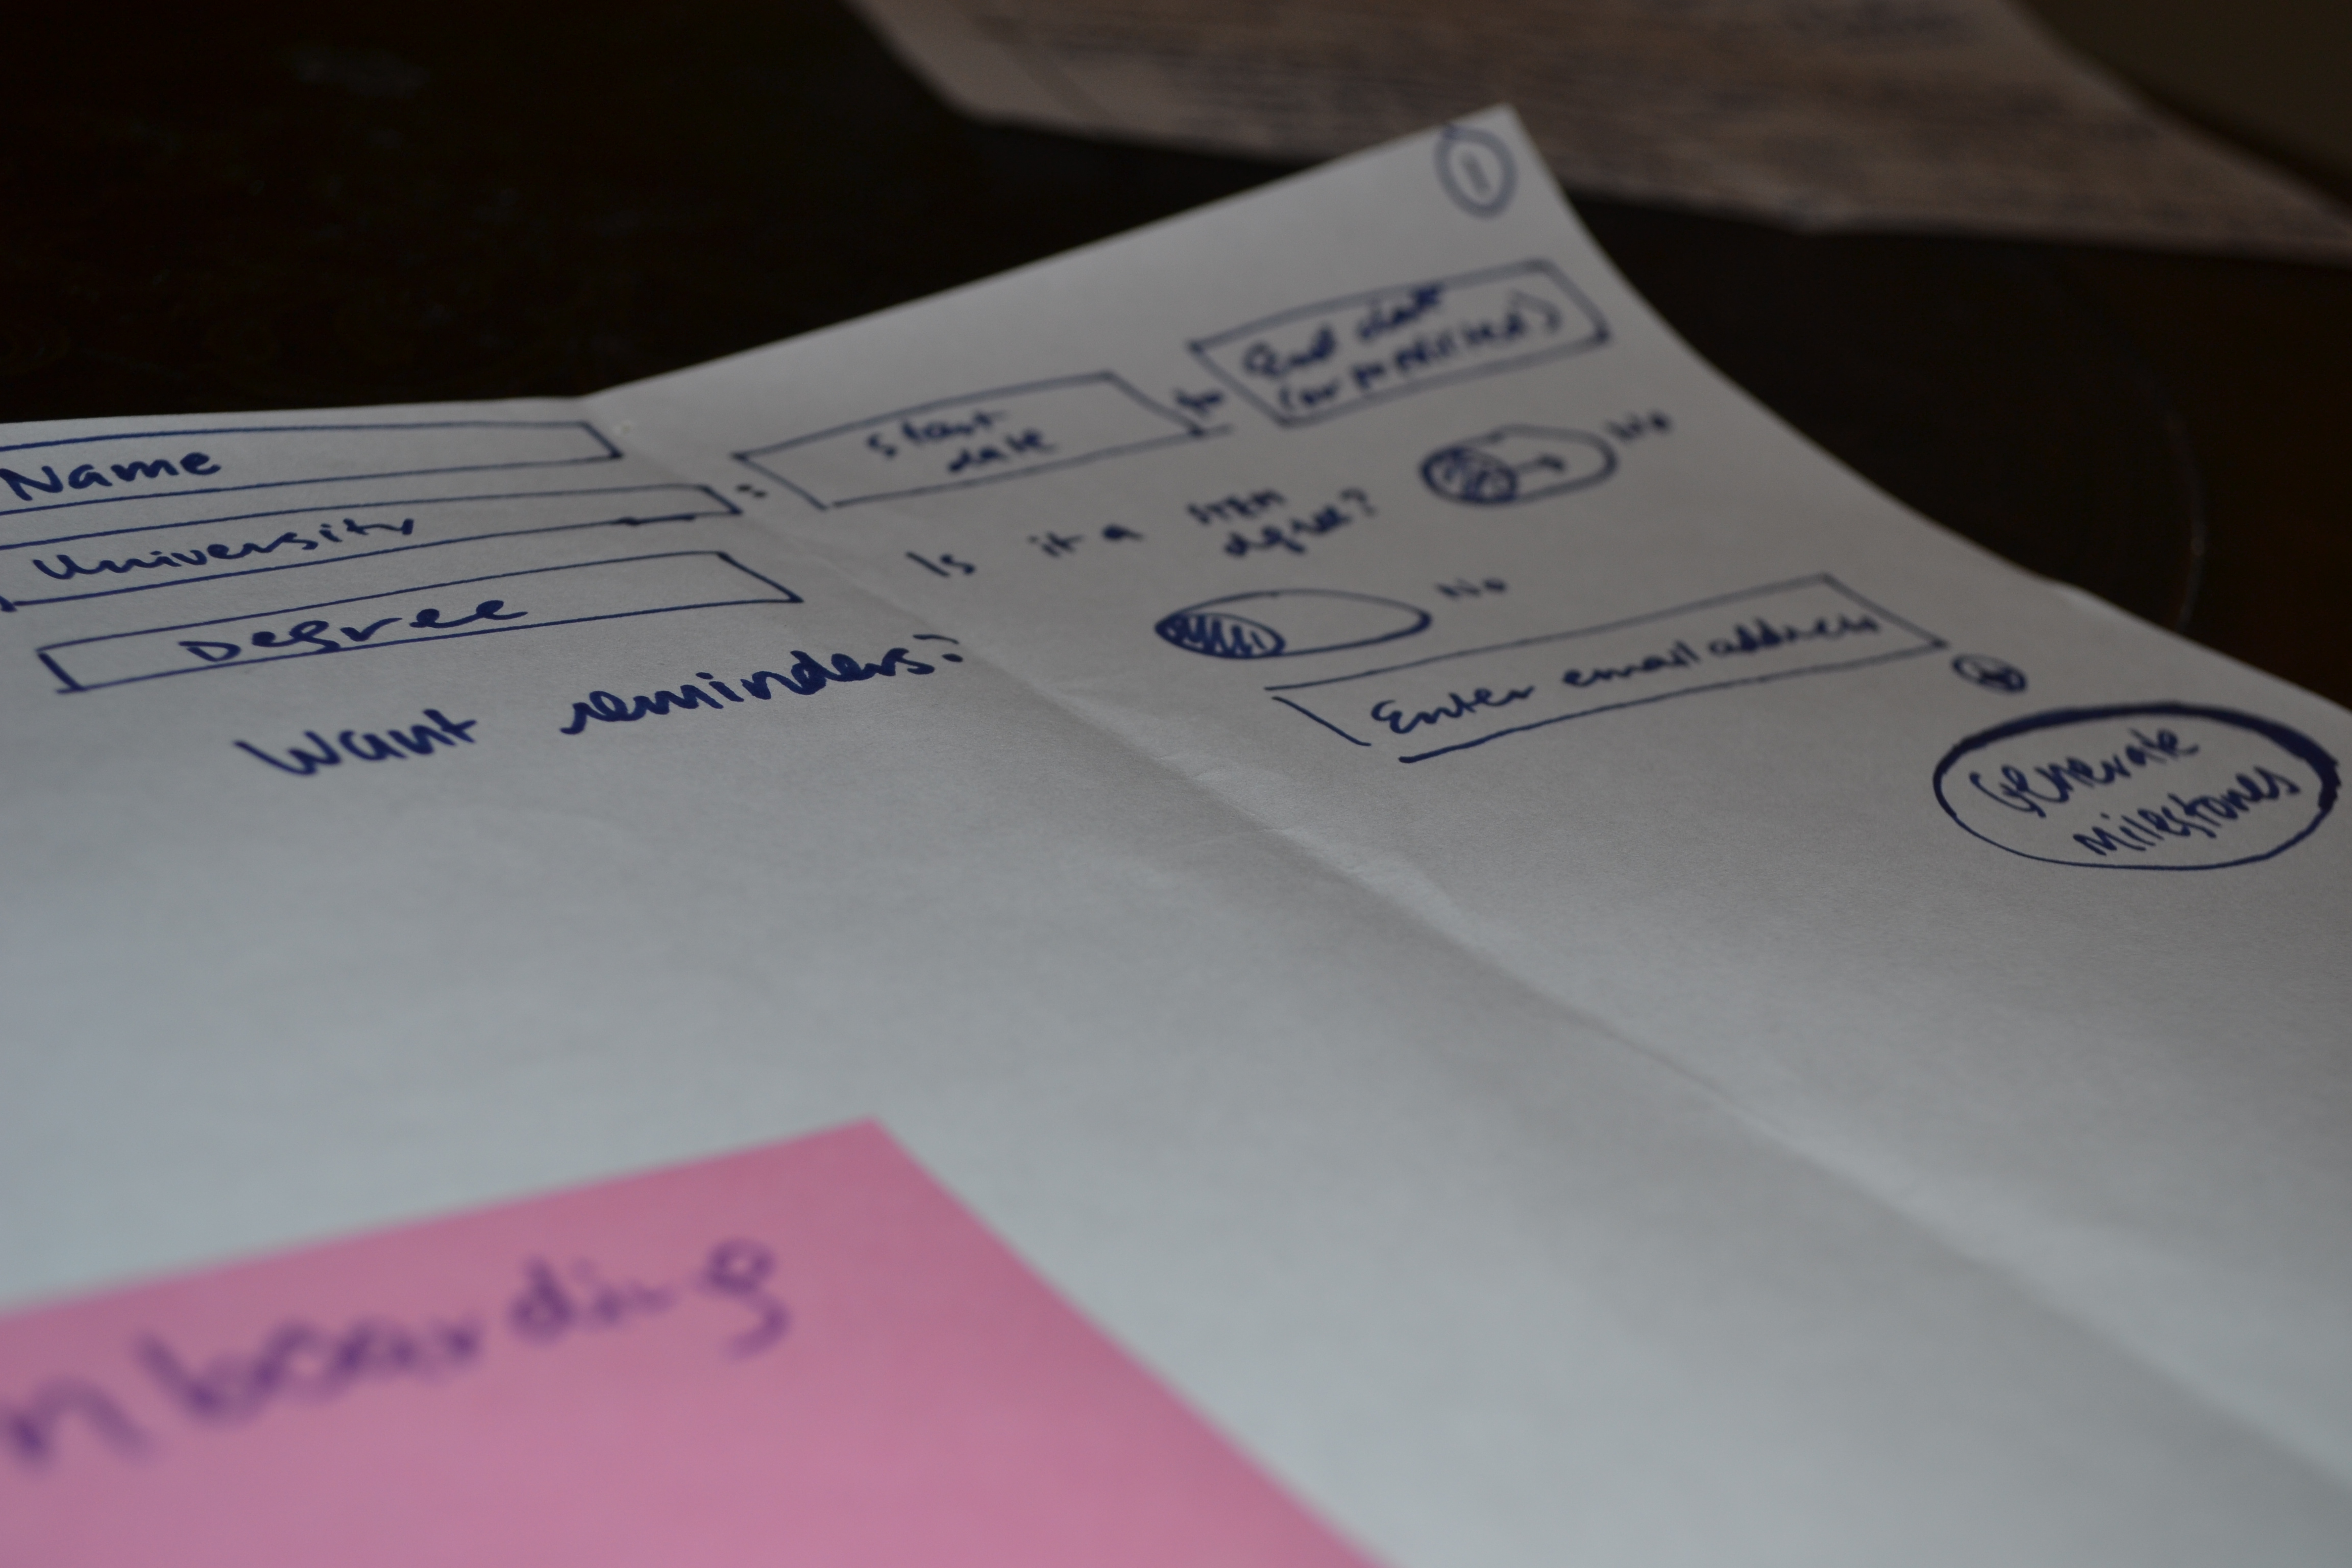 Name
University
:
start
date
to
End date
(or populated)
Degree
Is it a STEM
degree?
No
Want reminders?
No
Enter email address
Generate
Milestones
nboarding